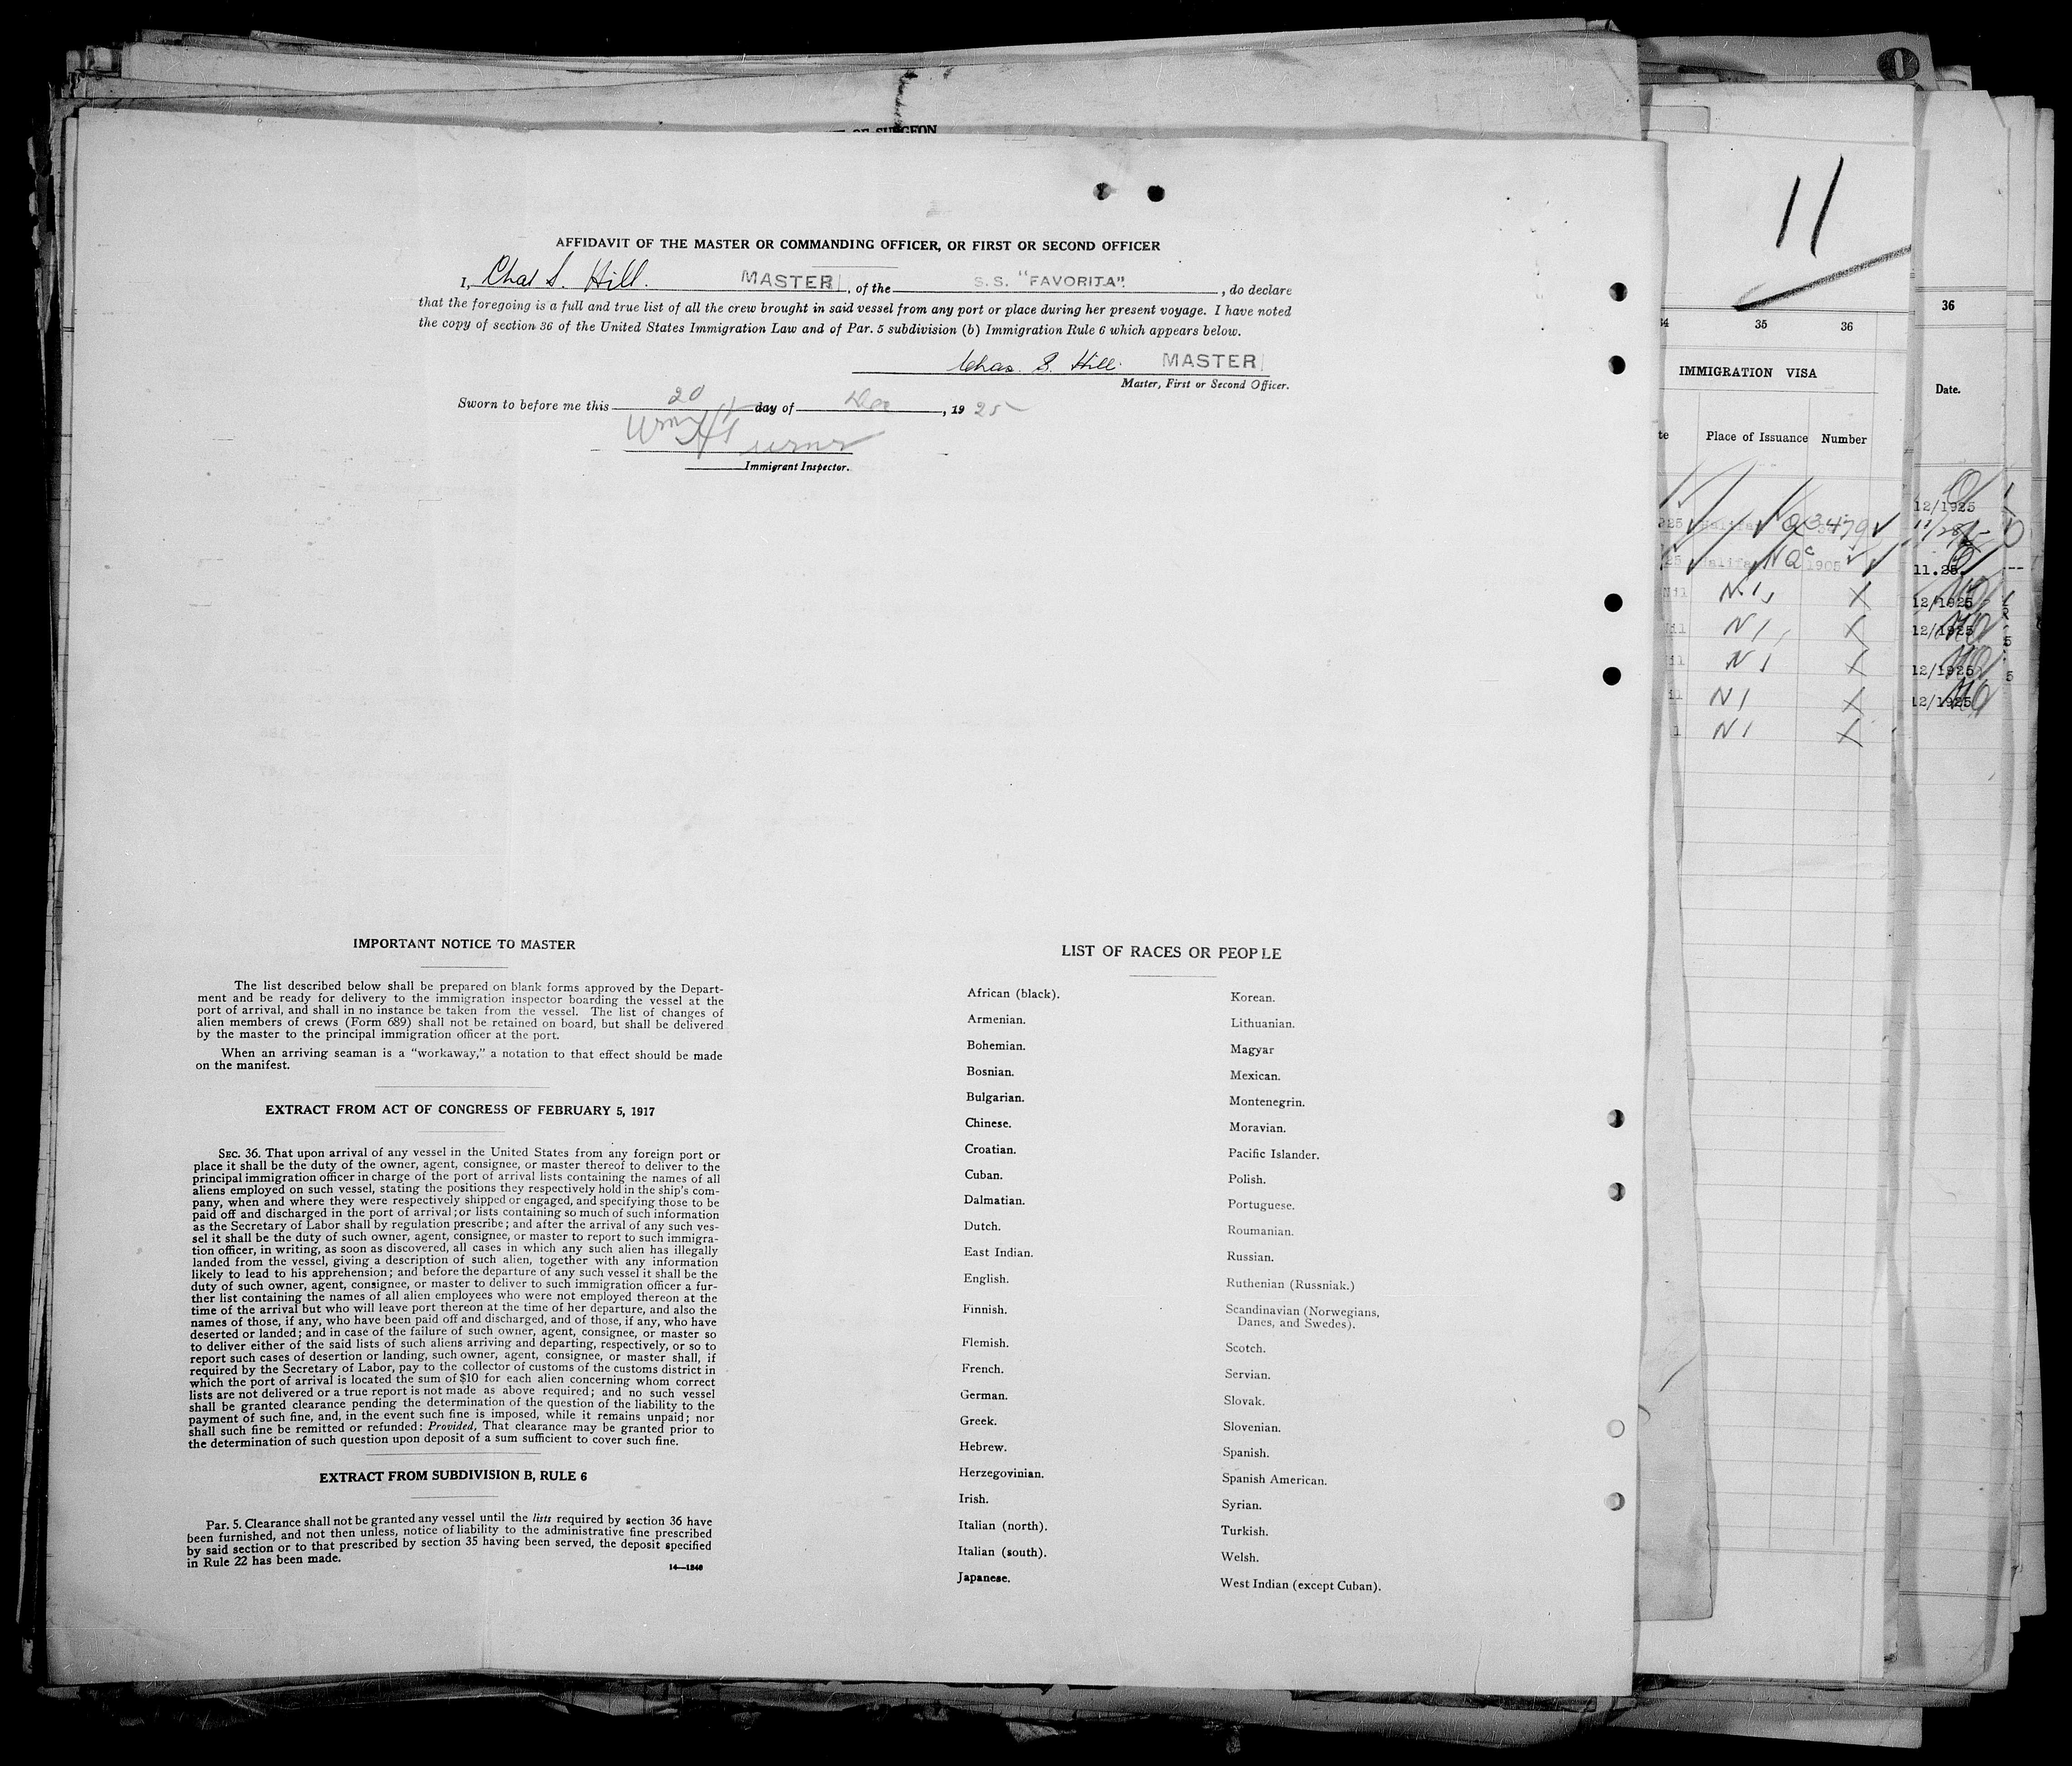 OF SURGEON
AFFIDAVIT OF THE MASTER OR COMMANDING OFFICER, OR FIRST OR SECOND OFFICER
I, Chas S. Hill. MASTER, of the S.S. "FAVORITA". , do declare
that the foregoing is a full and true list of all the crew brought in said vessel from any port or place during her present voyage. I have noted
the copy of section 36 of the United States Immigration Law and of Par. 5 subdivision (b) Immigration Rule 6 which appears below.
Chas. S. Hill. MASTER
Master, First or Second Officer.
Sworn to before me this 20 day of Dec, 1925
Immigrant Inspector.
IMPORTANT NOTICE TO MASTER
The list described below shall be prepared on blank forms approved by the Depart-
ment and be ready for delivery to the immigration inspector boarding the vessel at the
port of arrival, and shall in no instance be taken from the vessel. The list of changes of
alien members of crews (Form 689) shall not be retained on board, but shall be delivered
by the master to the principal immigration officer at the port.
When an arriving seaman is a "workaway," a notation to that effect should be made
on the manifest.
EXTRACT FROM ACT OF CONGRESS OF FEBRUARY 5, 1917
SEC. 36. That upon arrival of any vessel in the United States from any foreign port or
place it shall be the duty of the owner, agent, consignee, or master thereof to deliver to the
principal immigration officer in charge of the port of arrival lists containing the names of all
aliens employed on such vessel, stating the positions they respectively hold in the ship's com-
pany, when and where they were respectively shipped or engaged, and specifying those to be
paid off and discharged in the port of arrival; or lists containing so much of such information
as the Secretary of Labor shall by regulation prescribe; and after the arrival of any such ves-
sel it shall be the duty of such owner, agent, consignee, or master to report to such immigra-
tion officer, in writing, as soon as discovered, all cases in which any such alien has illegally
landed from the vessel, giving a description of such alien, together with any information
likely to lead to his apprehension; and before the departure of any such vessel it shall be the
duty of such owner, agent, consignee, or master to deliver to such immigration officer a fur-
ther list containing the names of all alien employees who were not employed thereon at the
time of the arrival but who will leave port thereon at the time of her departure, and also the
names of those, if any, who have been paid off and discharged, and of those, if any, who have
deserted or landed; and in case of the failure of such owner, agent, consignee, or master so
to deliver either of the said lists of such aliens arriving and departing, respectively, or so to
report such cases of desertion or landing, such owner, agent, consignee, or master shall, if
required by the Secretary of Labor, pay to the collector of customs of the customs district in
which the port of arrival is located the sum of $10 for each alien concerning whom correct
lists are not delivered or a true report is not made as above required; and no such vessel
shall be granted clearance pending the determination of the question of the liability to the
payment of such fine, and, in the event such fine is imposed, while it remains unpaid; nor
shall such fine be remitted or refunded: Provided, That clearance may be granted prior to
the determination of such question upon deposit of a sum sufficient to cover such fine.
EXTRACT FROM SUBDIVISION B, RULE 6
Par. 5. Clearance shall not be granted any vessel until the lists required by section 36 have
been furnished, and not then unless, notice of liability to the administrative fine prescribed
by said section or to that prescribed by section 35 having been served, the deposit specified
in Rule 22 has been made.
14—1240
LIST OF RACES OR PEOPLE
African (black).
Armenian.
Bohemian.
Bosnian.
Bulgarian.
Chinese.
Croatian.
Cuban.
Dalmatian.
Dutch.
East Indian.
English.
Finnish.
Flemish.
French.
German.
Greek.
Hebrew.
Herzegovinian.
Irish.
Italian (north).
Italian (south).
Japanese.
Korean.
Lithuanian.
Magyar
Mexican.
Montenegrin.
Moravian.
Pacific Islander.
Polish.
Portuguese.
Roumanian.
Russian.
Ruthenian (Russniak.)
Scandinavian (Norwegians,
Danes, and Swedes).
Scotch.
Servian.
Slovak.
Slovenian.
Spanish.
Spanish American.
Syrian.
Turkish.
Welsh.
West Indian (except Cuban).
11
35 36
IMMIGRATION VISA
Place of Issuance Number
3479
1905
N1
N1
N1
N1
N1
36
Date.
12/1925
11.25
12/1925
12/1925
12/1925
12/1925